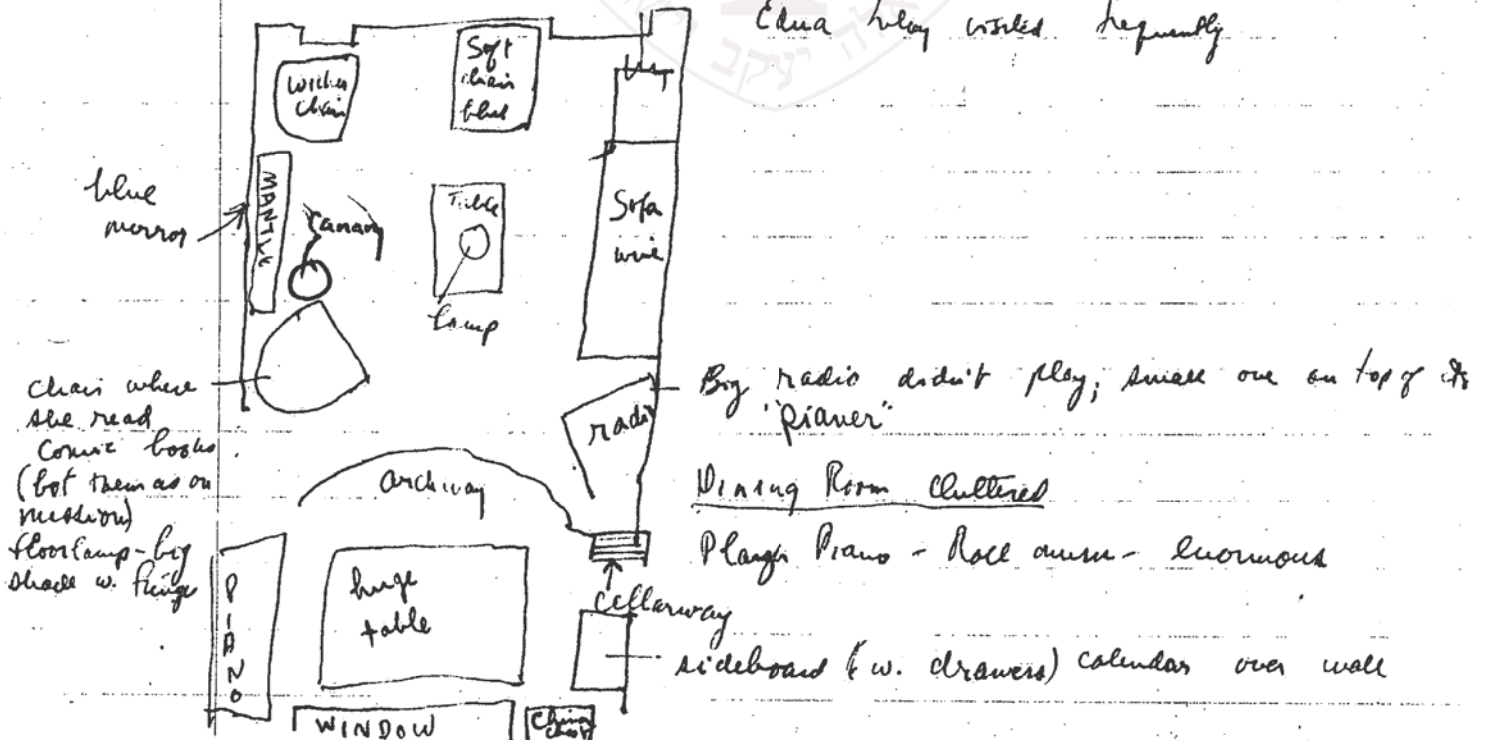 Edna visited frequently
יעקב
wicker
chair
Soft
chair
blue
blue
mirror
MANTLE
Canary
Table
lamp
Sofa
wine
chair where
she read
comic books
(bot them as on
mission)
floorlamp - big
shade w. fringe
radio
Big radio didn't play; small one on top of it
"pianer"
archway
Dining Room Cluttered
Player Piano - Roll music - enormous
PIANO
huge
table
cellarway
sideboard (w. drawers) calendar over wall
WINDOW
China